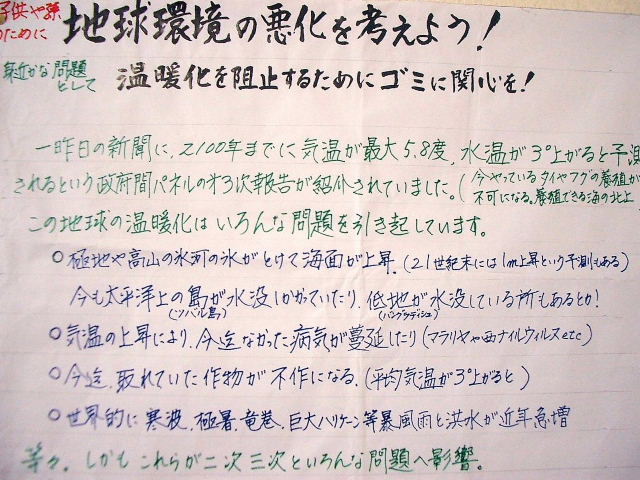 子供や孫
のために
地球環境の悪化を考えよう!
身近かな問題
として
温暖化を阻止するためにゴミに関心を!
一昨日の新聞に、2100年までに気温が最大5.8度、水温が3°上がると予測
されるという政府間パネルの第3次報告が紹介されていました。(今やっているタイやフグの養殖が
不可になる。養殖できる海の北上
この地球の温暖化はいろんな問題を引き起しています。
○極地や高山の氷河の氷がとけて海面が上昇。(21世紀末には1m上昇という予測もある)
今も太平洋上の島が水没しかかっていたり、低地が水没している所もあるとか!
(ツバル島)
(バングラディシュ)
○気温の上昇により、今迄なかった病気が蔓延したり(マラリヤや西ナイルウィルスetc)
○今迄、取れていた作物が不作になる。(平均気温が3°上がると)
○世界的に寒波、極暑、竜巻、巨大ハリケーン等暴風雨と洪水が近年急増
等々。しかもこれらが二次三次といろんな問題へ影響。